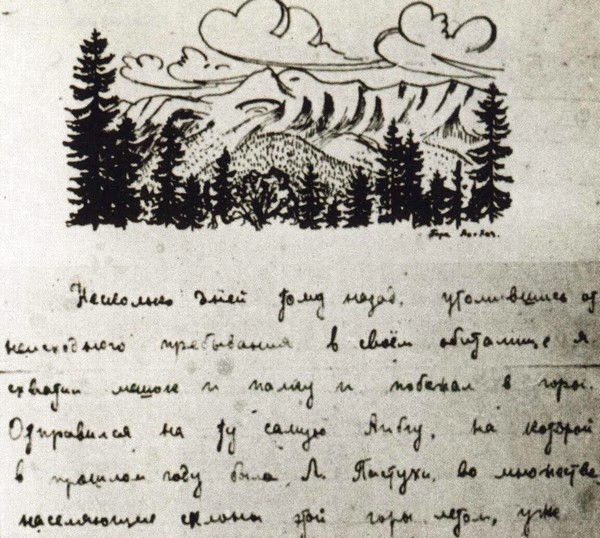 Гора Ак-Хач.
Несколько дней тому назад, утомившись от
неисходного пребывания в своём обиталище я
схватил мешок и палку и побежал в горы.
Отправился на ту самую Аибгу, на которой
в прошлом году была Л. Пастухи, во множестве
населяющие склоны этой горы летом, уже